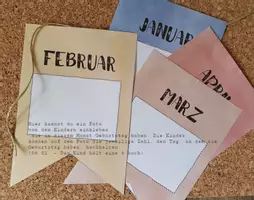 JANUAR
FEBRUAR
APRIL
MÄRZ
Hier kannst du ein Foto
von den Kindern einkleben
die in diesem Monat Geburtstag haben. Die Kinder
können auf dem Foto die jeweilige Zahl, den Tag, an dem sie
Geburtstag haben, hochhalten
Kind hält eine hoch.